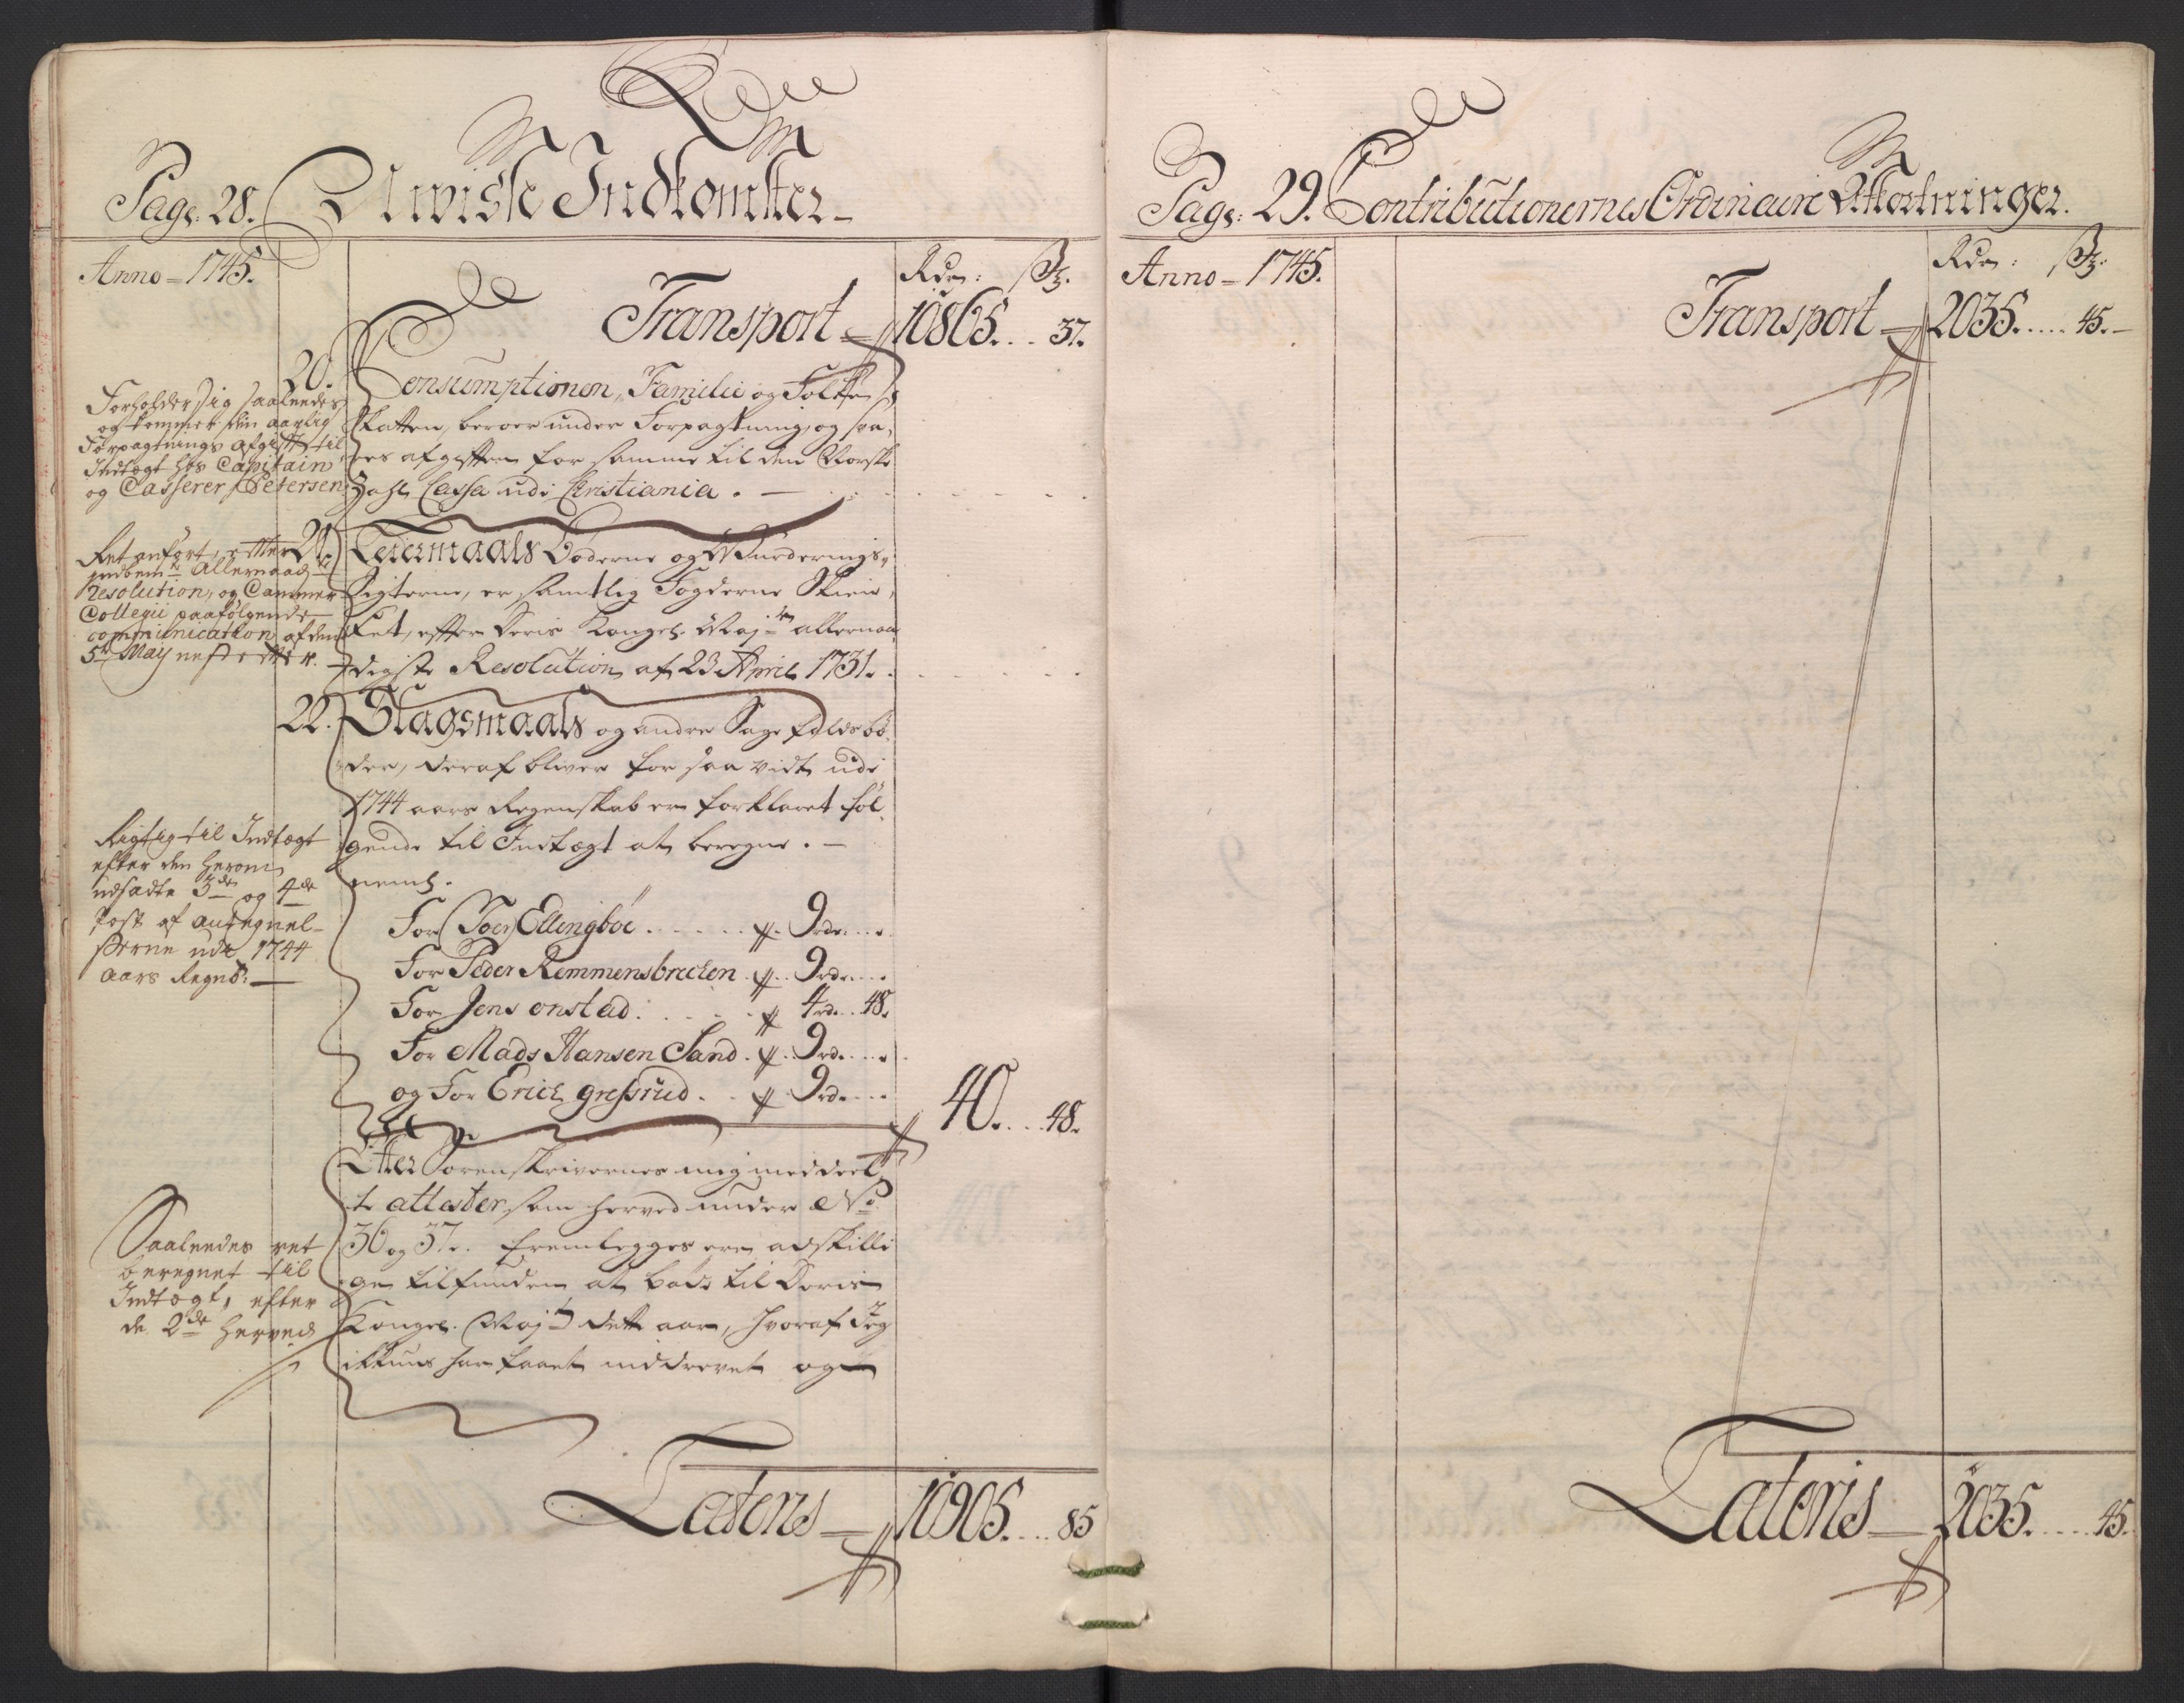 Page: 28. U wisse Indkomster
Anno - 1745. Rdr: ß.
Transport 10865... 37.
20. Consumptionen, Familie og Folke
Skatten, beroer under Forpagtning, og sva,
res afgiften for samme til den Norske
Zahl Cassa udi Christiania. -
Forholder sig saaleedes
og kommer den aarlig
Forpagtnings afgift til
Indtægt hos Capitain
og Casserer Petersen
21. Leiermaals Bøderne og Wurderings,
Sigterne, er samtlig Fogderne Skien,
ket, efter Deris Kongel. May:ts allernaa
digste Resolution af 23 April 1731.
Ret anført, efter
indbem:te Allernaad:te
Resolution, og Cammer
Collegii paafølgende
communication af den
5te May nest efter.
22. Slagsmaals og andre Sage fald bø,
der, deraf bliver for saa vidt udi
1744 aars Regenskab er forklaret føl,
gende til Indtægt at beregne. -
neml.
Rigtig til Indtægt
efter den herom
udsadte 3de og 4de
Post af antegnel-
serne udi 1744
aars Regnsk: -
For Joen Ellingbøe ...... 9 rdr....
For Peder Remmensbrechen .. 9 rdr....
For Jens onstad ..... 4 rd.. 48.
For Mads Hansen Sand .. 9 rd....
og For Erich gressrud .. 9 rd....
40... 48.
Efter Sorenskrivernes mig meddeel,
te attester, som herved under No
36 og 37. fremlegges ere adskilli
ge tilfunden at bøde til Deris
Kongel. May:t dette aar, hvoraf Jeg
ikkuns har faaet inddrevet og
Saaleedes ret
beregnet til
Indtægt, efter
de 2de herved
Lateris 10905... 85
Page: 29. Contributionernes Ordinaire Afkortninger.
Anno - 1745. Rdr: ß.
Transport 2035..... 45. -
Lateris 2035..... 45.